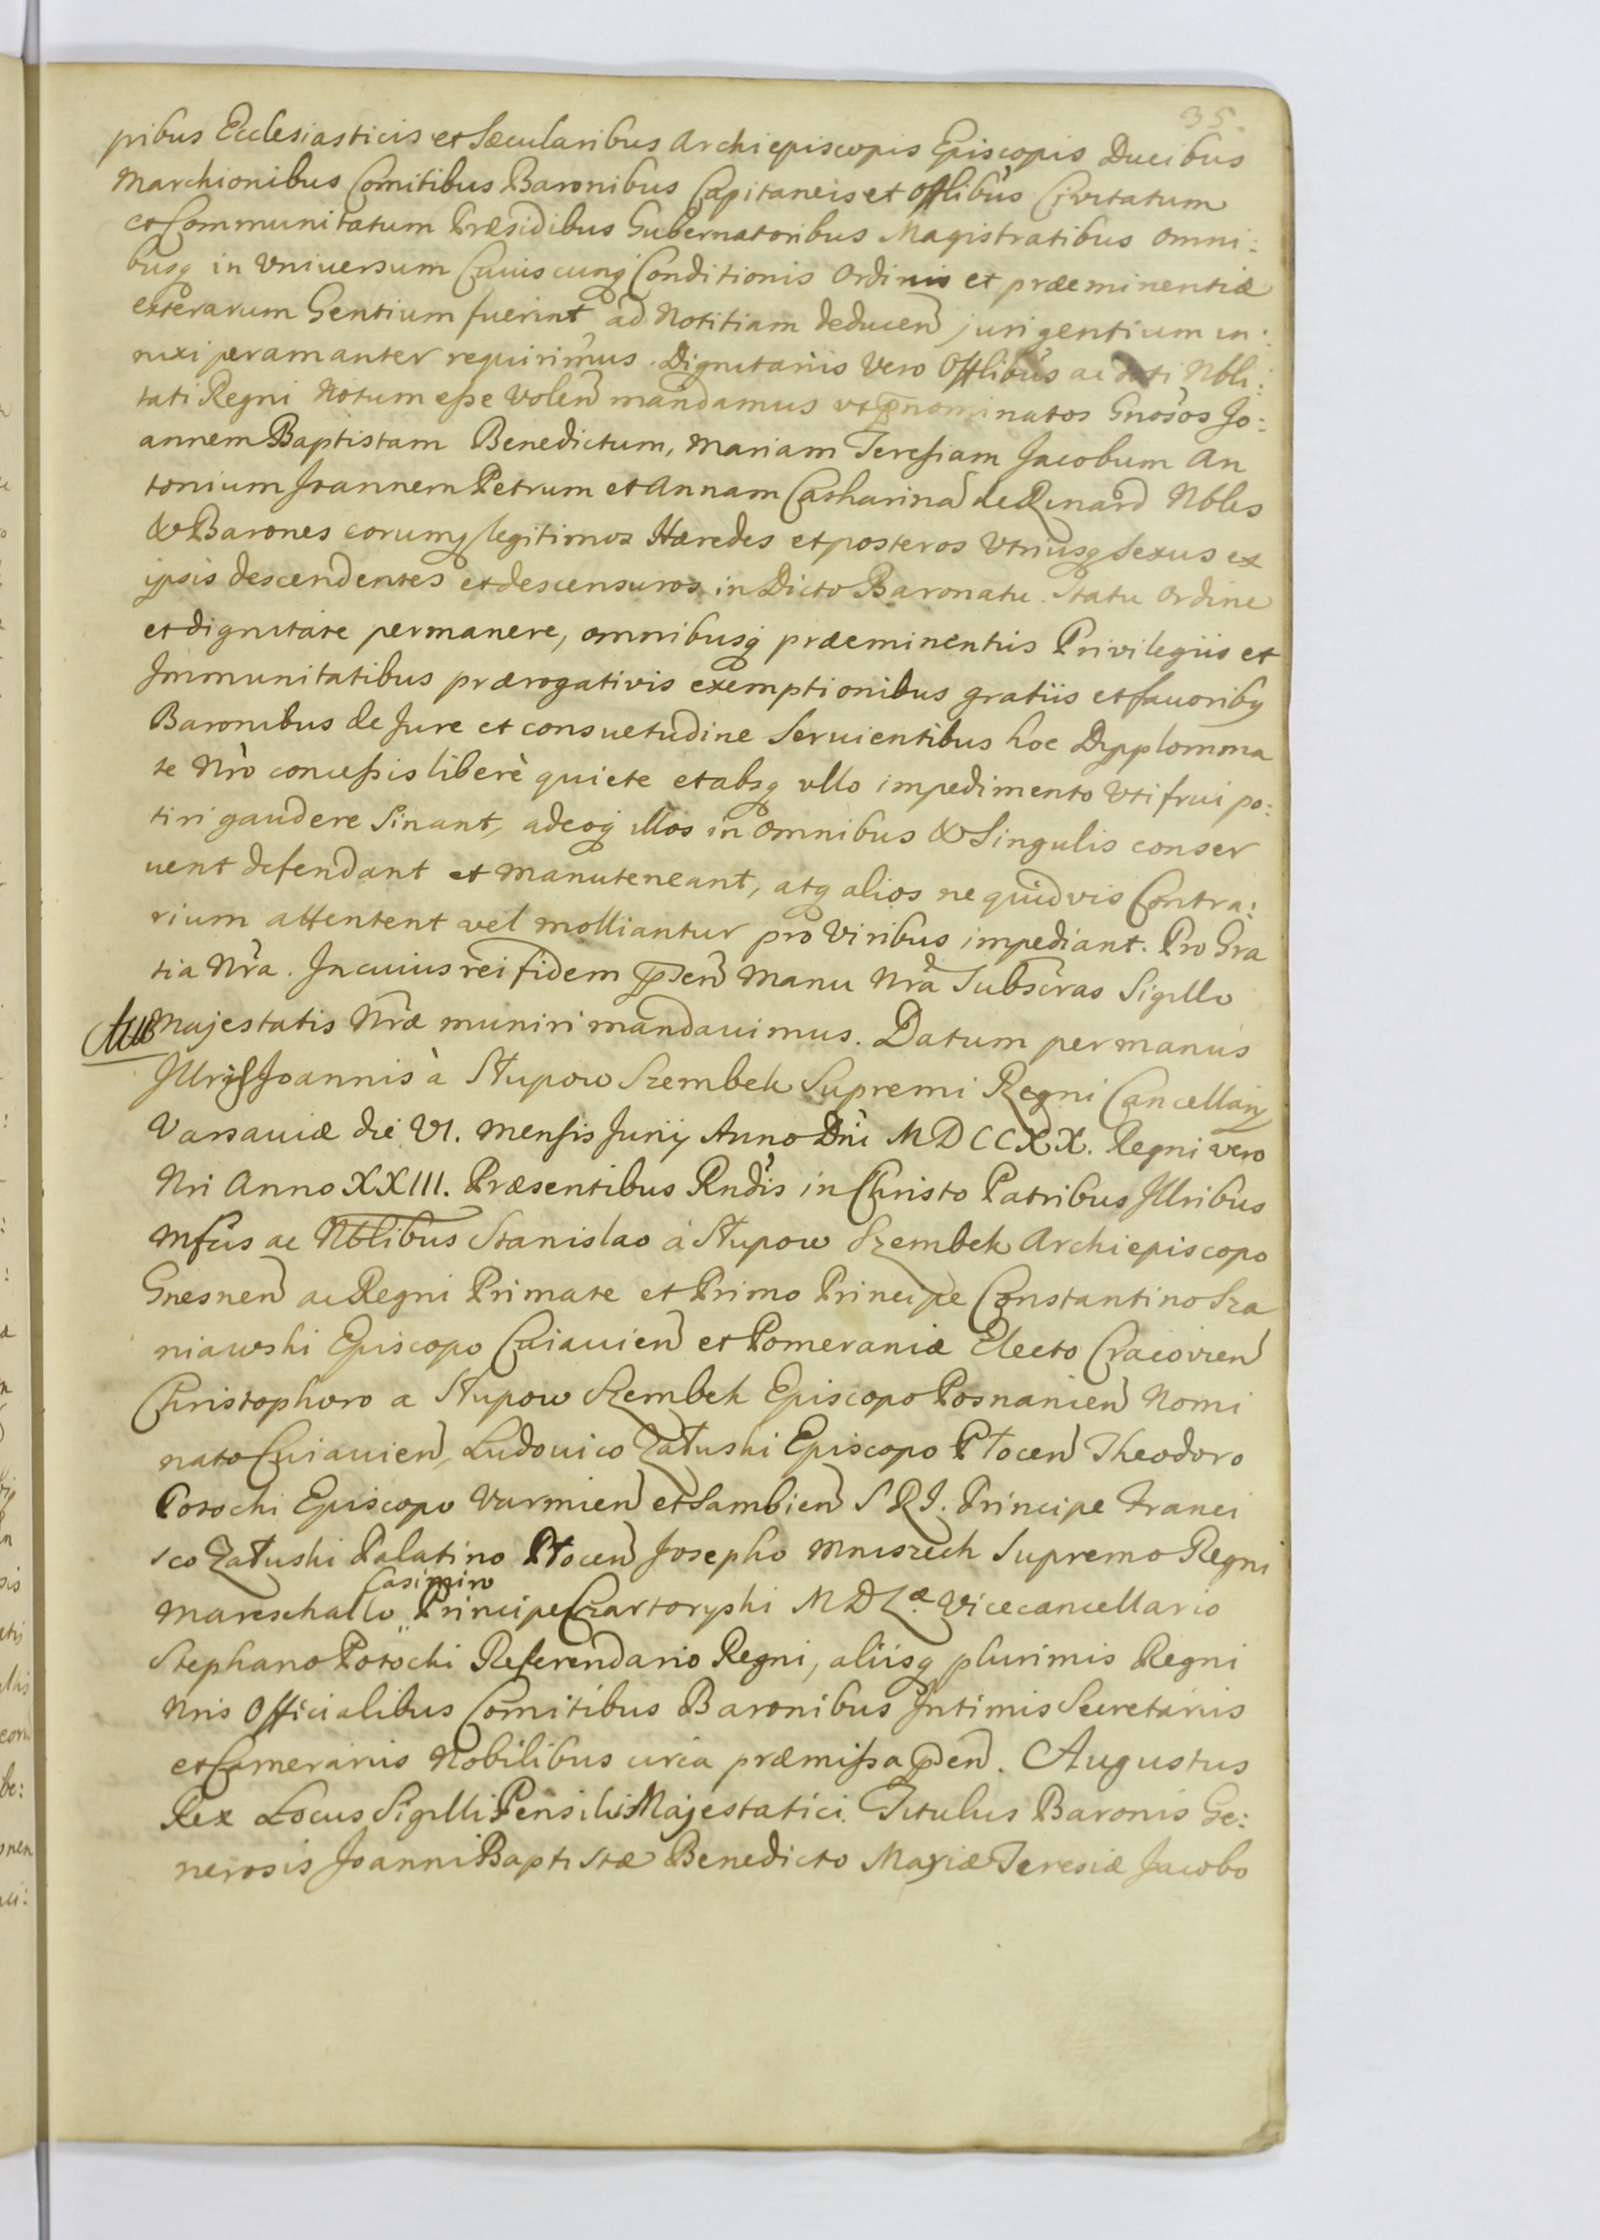 35.
pibus Ecclesiasticis et Sæcularibus Archiepiscopis Episcopis Ducibus
Marchionibus Comitibus Baronibus Capitaneis et Offlibus Civitatum
et Communitatum Præsidibus Gubernatoribus Magistratibus omni:
busq in Vniuersum Cuiuscunq Conditionis Ordinis et præeminentiæ
exterarum Gentium fuerint ad Notitiam deducen juri gentium in:
nixi peramanter requirimus. Dignitariis Vero Offlibus ac toti Nbli:
tati Regni Notum eße Volen mandamus vt pnominatos Gnosos Jo:
annem Baptistam Benedictum, Mariam Teresiam Jacobum An
tonium Joannem Petrum et Annam Catharina de Renard Nbles
& Barones eorumq legitimos Hæredes et posteros Vtriusq Sexus ex
ipsis descendentes et descensuros in Dicto Baronatu Statu Ordine
et dignitate permanere, omnibusq præeminentiis Privilegiis et
Immunitatibus prærogativis exemptionibus gratiis et fauoribq
Baronibus de Jure et consuetudine Seruientibus hoc Dypplomma
te Nro conceßis liberè quiete et absq vllo impedimento Vti frui po:
tiri gaudere Sinant, adeoq illos in omnibus & Singulis conser
uent defendant et manuteneant, atq alios ne quidvis Contra:
rium attentent vel molliantur pro Viribus impediant. Pro Gra
tia Nra. In cuius rei fidem psen manu Nra Subscras Sigillo
Majestatis Nræ muniri mandauimus. Datum per manus
Illris Joannis à Słupow Szembek Supremi Regni Cancellarij
Varsauiæ die VI. Mensis Junij Anno Dni MDCCXX. Regni vero
Nri Anno XXIII. Præsentibus Rndis in Christo Patribus Illribus
Mfcis ac Nblibus Stanislao à Słupow Szembek Archiepiscopo
Gnesnen ac Regni Primate et Primo Principe Constantino Sza
niawski Episcopo Cuiauien et Pomeraniæ Electo Cracovien
Christophoro a Słupow Szembek Episcopo Posnanien Nomi
nato Cuiauien, Ludouico Załuski Episcopo Płocen Theodoro
Potocki Episcopo Varmien et Sambien S R I. Principe Franci
sco Załuski Palatino Płocen Josepho Mniszech Supremo Regni
Casimiro
Mareschallo Principe Czartoryski M D Læ Vicecancellario
Stephano Potocki Referendario Regni, aliisq plurimis Regni
Nris Officialibus Comitibus Baronibus Intimis Secretariis
et Camerariis Nobilibus circa præmißa psen. Augustus
Rex Locus Sigilli Pensilis Majestatici. Titulus Baronis Ge:
nerosis Joanni Baptistæ Benedicto Mariæ Teresiæ Jacobo